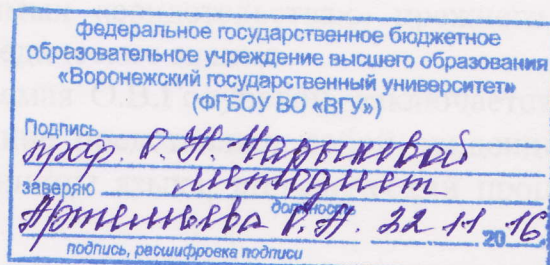 федеральное государственное бюджетное
образовательное учреждение высшего образования
«Воронежский государственный университет»
(ФГБОУ ВО «ВГУ»)
Подпись
проф. О. Н. Чарыковой
заверяю методист
должность
Артемьева 22 11 2016
подпись, расшифровка подписи